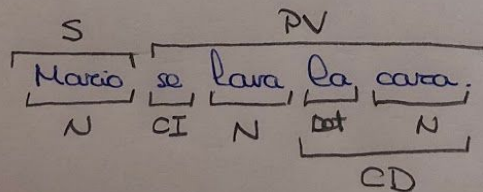 S PV
Mario se lava la cara.
N CI N Det N
CD